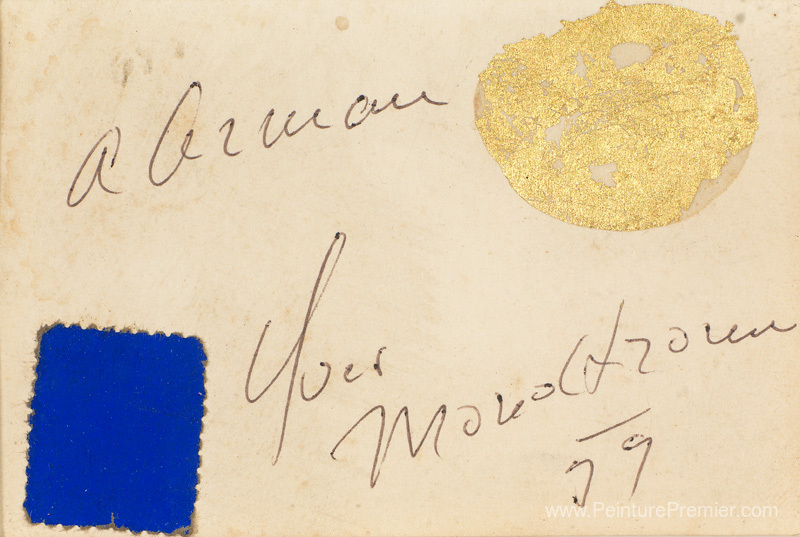 A Arman
Yves
Monochrome
59
www.PeinturePremier.com